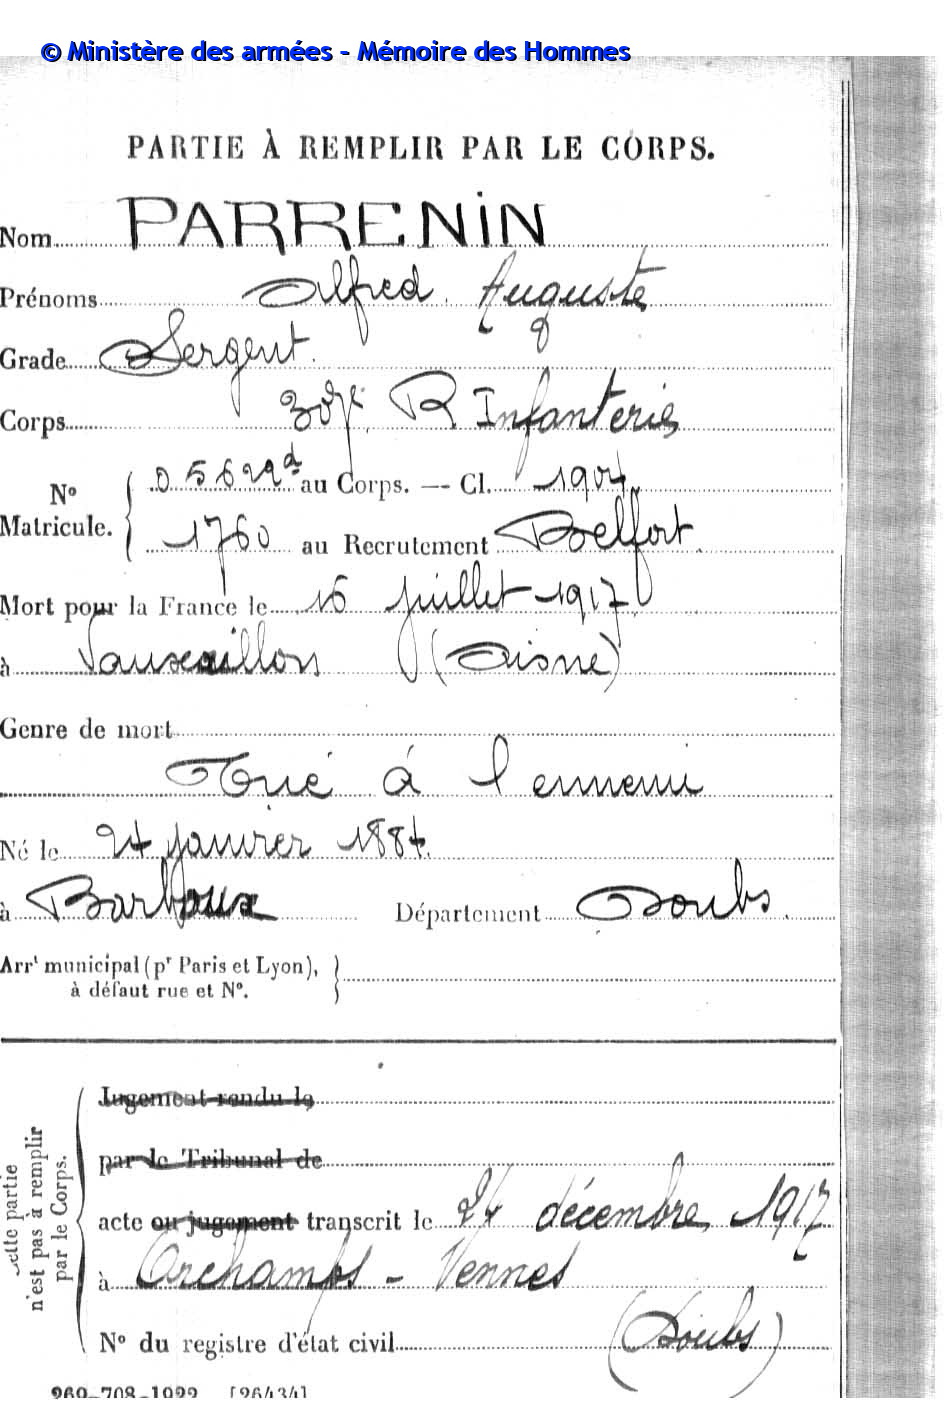 © Ministère des armées - Mémoire des Hommes
PARTIE À REMPLIR PAR LE CORPS.
Nom PARRENIN
Prénoms Alfred Auguste
Grade Sergent.
Corps R Infanterie
N° Matricule. { au Corps. — Cl. 1904
1760 au Recrutement Belfort.
Mort pour la France le 16 juillet 1917
à Vauxaillon (Aisne)
Genre de mort
Tué à l'ennemi
Né le 24 janvier 1884.
à Barboux Département Doubs.
Arrt municipal (pr Paris et Lyon), }
à défaut rue et N°.
Cette partie
n'est pas à remplir
par le Corps.
Jugement rendu le
par le Tribunal de
acte ou jugement transcrit le 24 décembre 1917
à Orchamps-Vennes
(Doubs)
N° du registre d'état civil
269-708-1922 [26434]